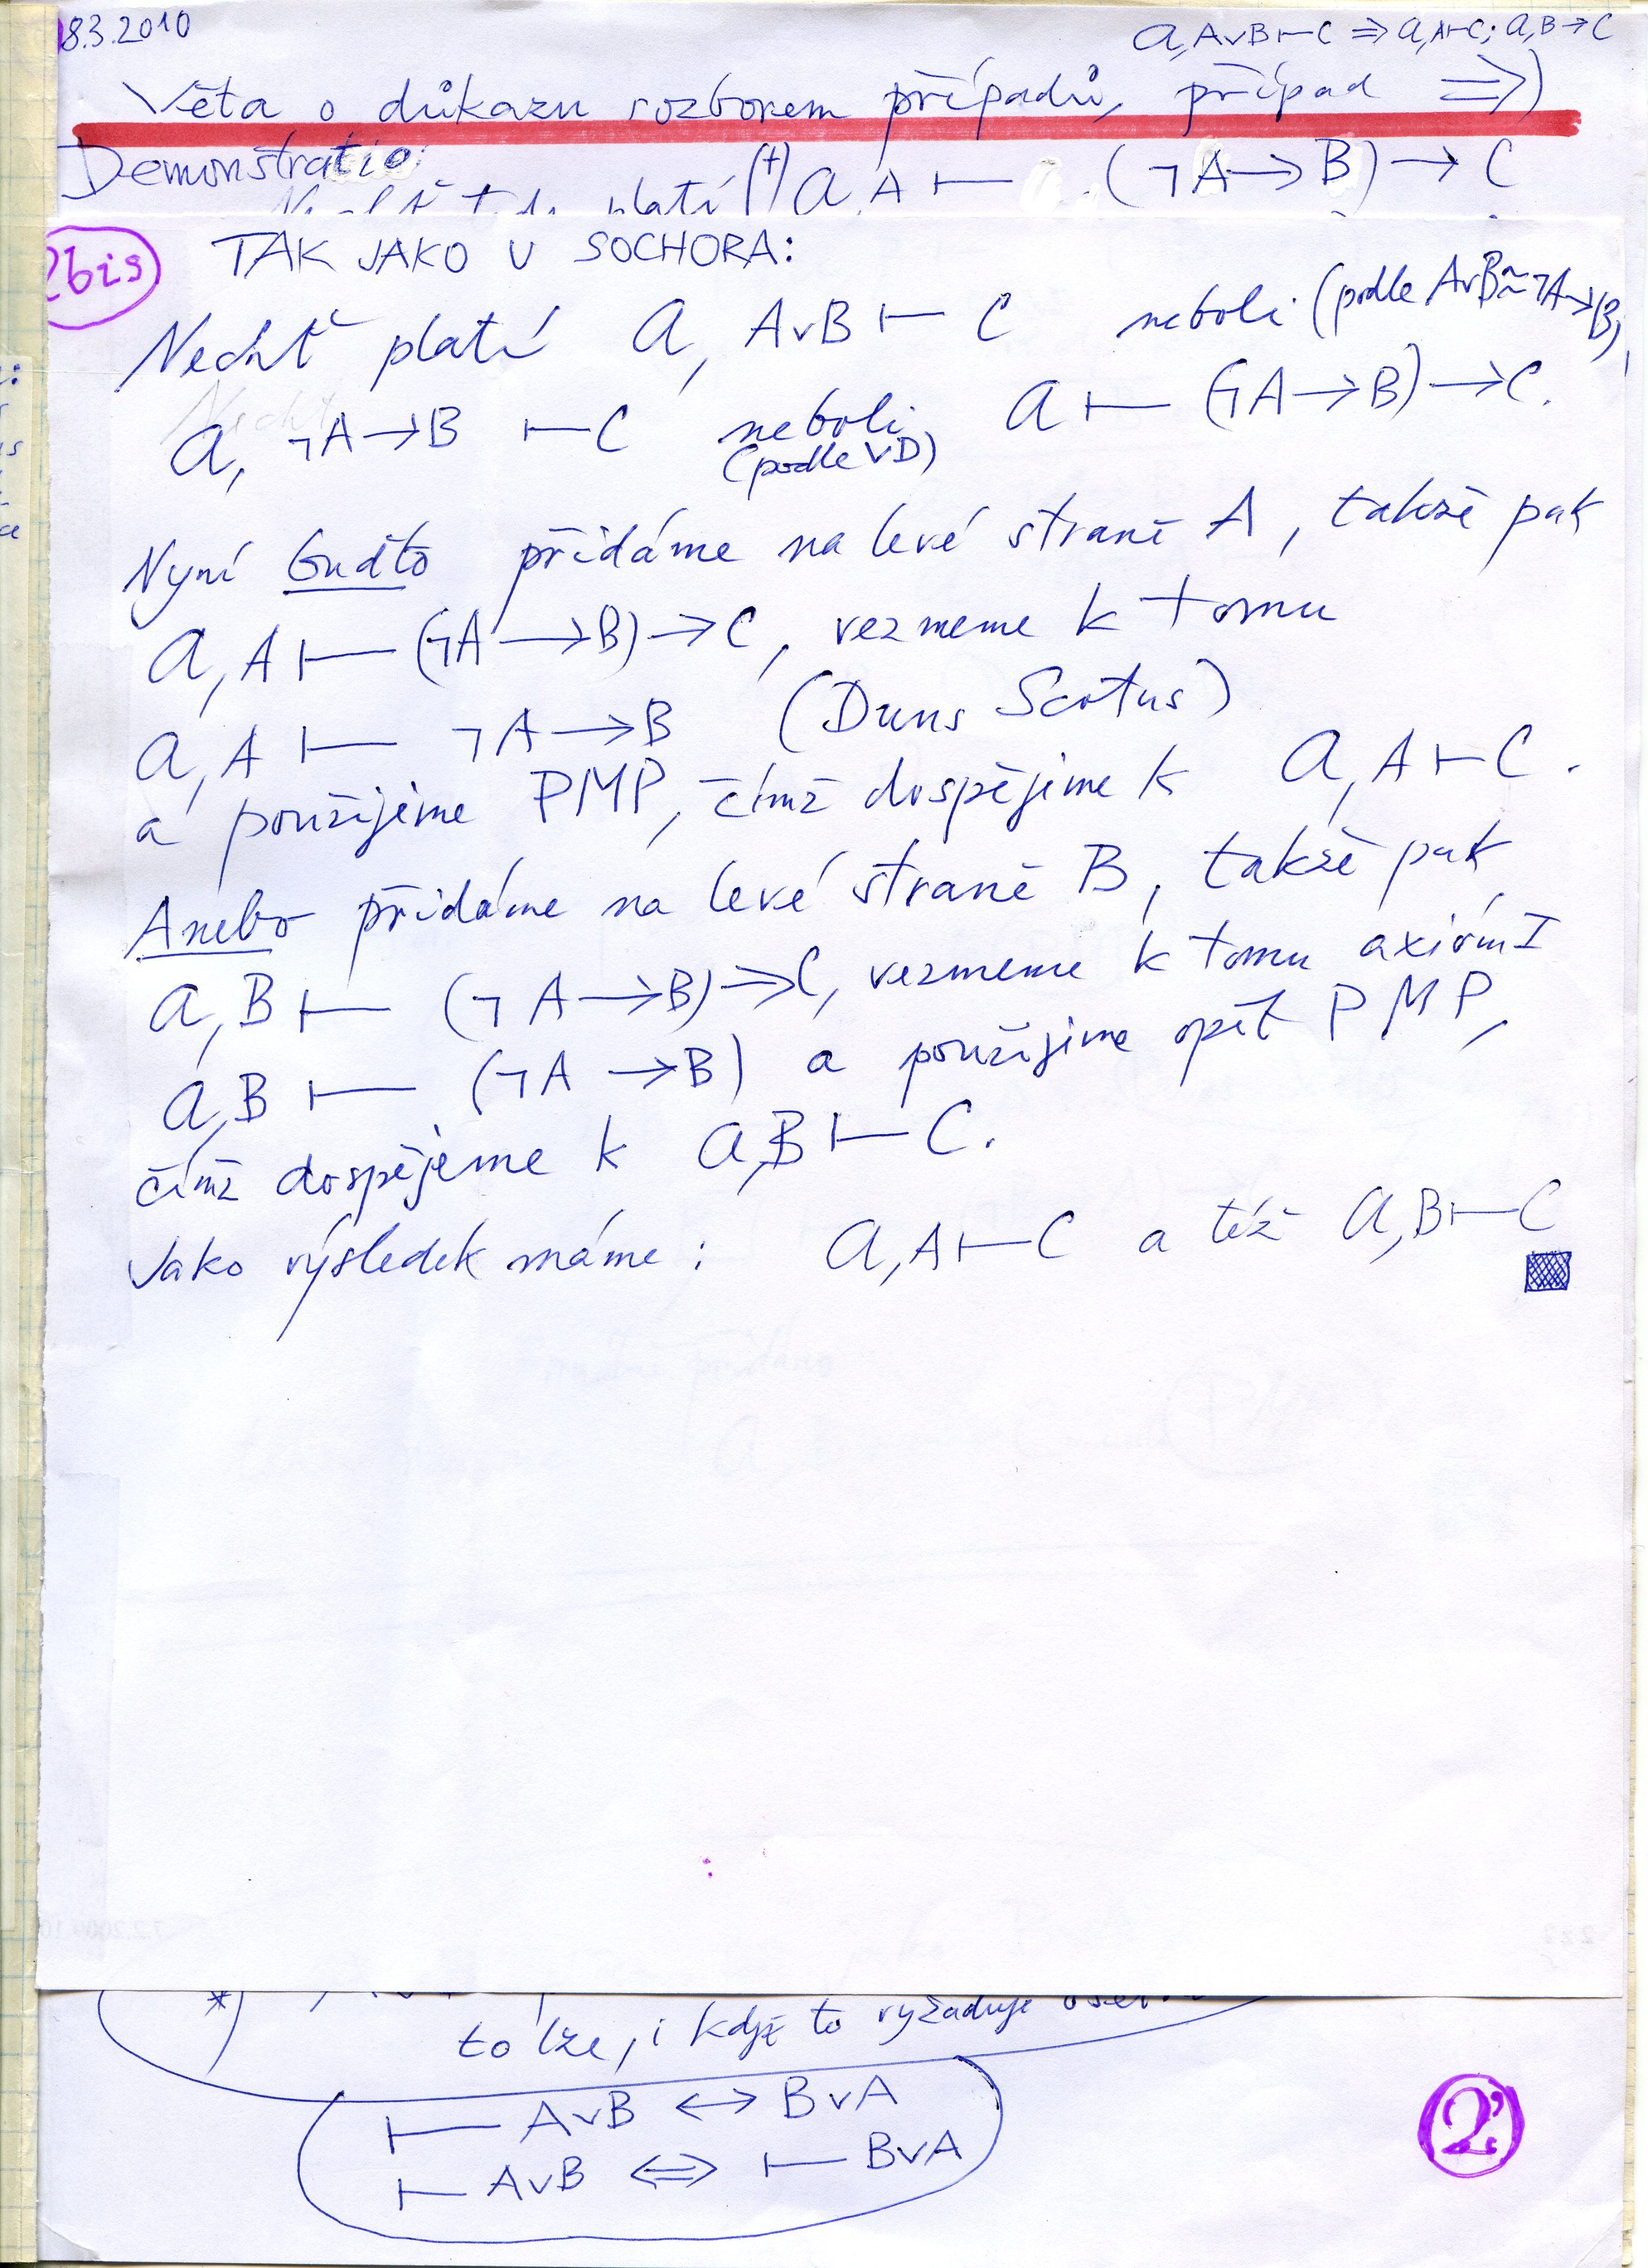 18.3.2010
a, A∨B ⊢ C ⇒ a, A ⊢ C; a, B → C
Věta o důkazu rozborem případů, případ ⇒)
Demonstratio:
platí (†) a, A ⊢ (¬A → B) → C
2bis
TAK JAKO U SOCHORA:
Nechť platí a, A∨B ⊢ C neboli (podle A∨B ≈ ¬A → B)
a, ¬A → B ⊢ C neboli a ⊢ (¬A → B) → C.
(podle VD)
Nyní buďto přidáme na levé straně A, takže pak
a, A ⊢ (¬A → B) → C, vezmeme k tomu
a, A ⊢ ¬A → B (Duns Scotus)
a použijeme PMP, čímž dospějeme k a, A ⊢ C.
Anebo přidáme na levé straně B, takže pak
a, B ⊢ (¬A → B) → C, vezmeme k tomu axióm I
a, B ⊢ (¬A → B) a použijeme opět PMP,
čímž dospějeme k a, B ⊢ C.
Jako výsledek máme: a, A ⊢ C a též a, B ⊢ C
*)
to lze, i když to vyžaduje
⊢ A∨B ↔ B∨A
⊢ A∨B ⇔ ⊢ B∨A
2